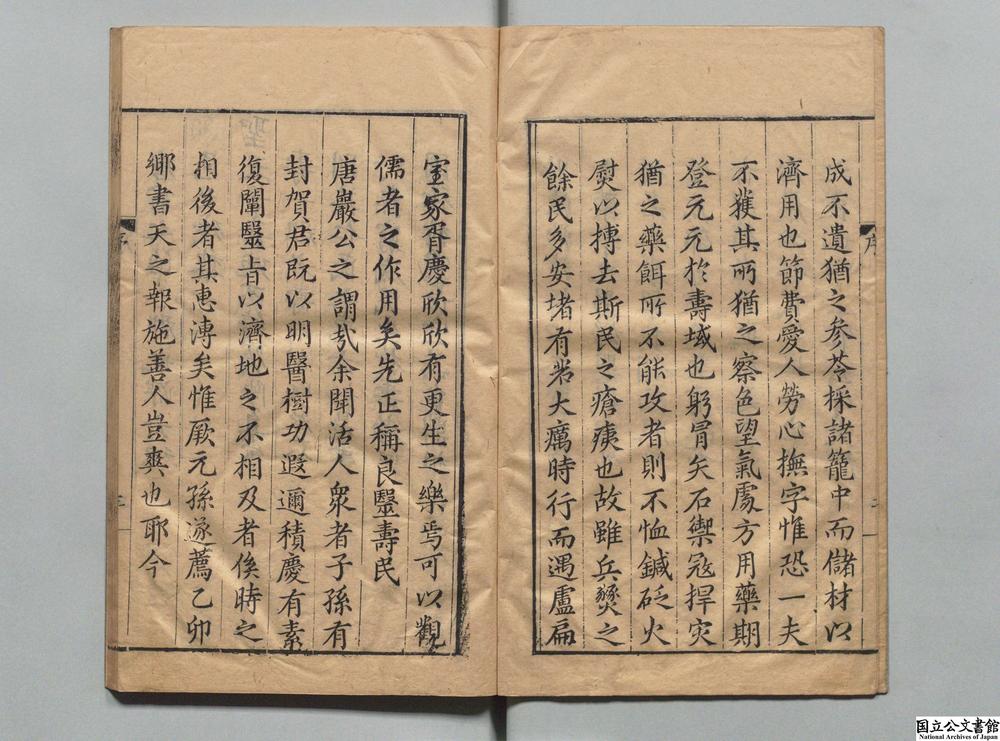 成不遺猶之参苓採諸籠中而儲材以
濟用也節費愛人勞心撫字惟恐一夫
不獲其所猶之察色望氣處方用藥期
登元元於壽域也躬冒矢石禦寇捍灾
猶之藥餌所不能攻者則不恤鍼砭火
熨以摶去斯民之瘡痍也故雖兵燹之
餘民多安堵有若大癘時行而遇盧扁
室家胥慶欣欣有更生之樂焉可以觀
儒者之作用矣先正稱良毉壽民
唐嚴公之謂哉余聞活人衆者子孫有
封賀君既以明醫樹功遐邇積慶有素
復闡毉旨以濟地之不相及者俟時之
相後者其惠溥矣惟厥元孫遂薦乙卯
鄉書天之報施善人豈爽也耶今
序
二
序
三
国立公文書館
National Archives of Japan